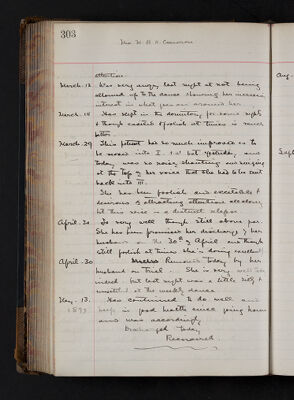 303
Mrs
attention
March. 12 Was very angry last night at not being
allowed up to the dance showing her increased
interest in what goes on around her
Has slept in the dormitory for some nights
& though excited & foolish at times is much
better
March. 29 This patient had so much improved as to
be moved into I. but yesterday and
today was so noisy shouting and
at the top of her voice that she had to be sent
back into III.
She has been foolish and excitable &
desirous of attracting attention all along
but this noise is a distinct relapse
April. 20 Is very well though still above par.
She has been promised her discharge by her
husband on the 30th of April and though
still foolish at times she is doing excellently
April. 30 Removed today by her
husband on Trial. She is very well
indeed but last night was a little
at the weekly dance
May. 13. Has continued to do well and
1899 in good health since going home
and was accordingly
Discharged today
Recovered
Aug.
Sept